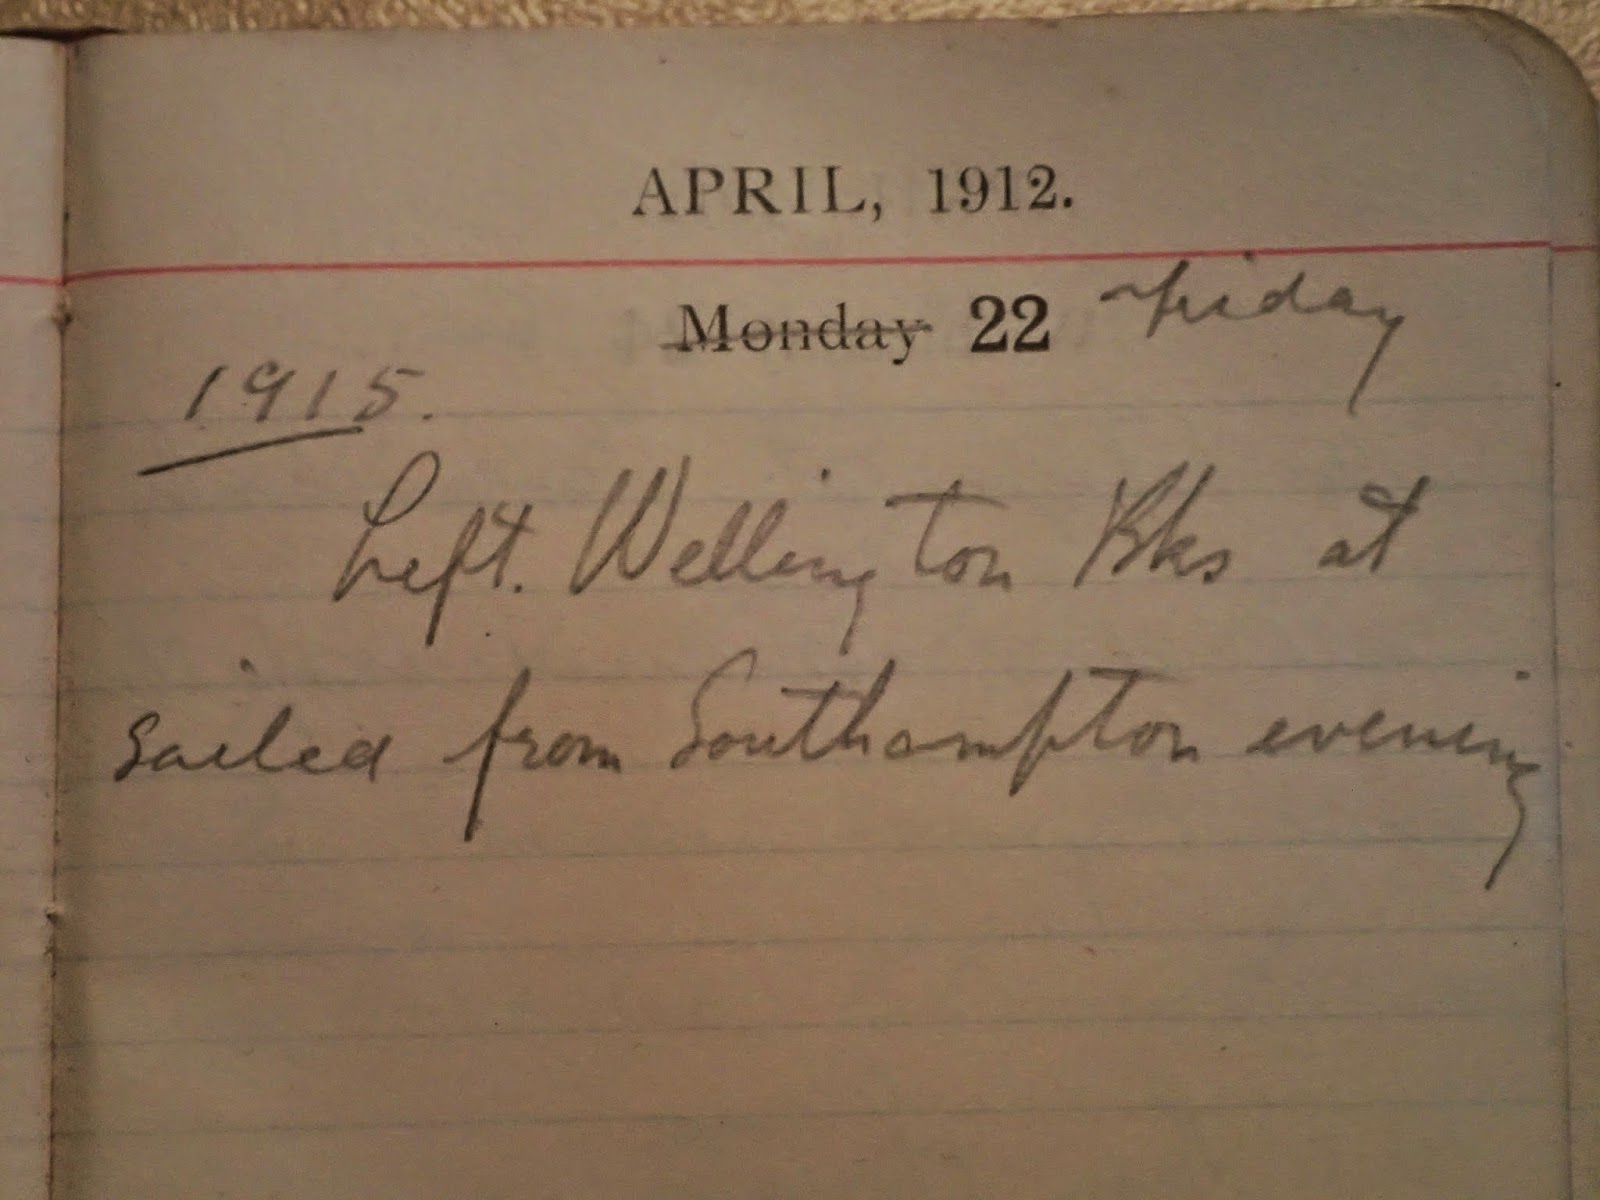 APRIL, 1912.
Monday 22 Friday
1915.
Left. Wellington Bks at
sailed from Southampton evening